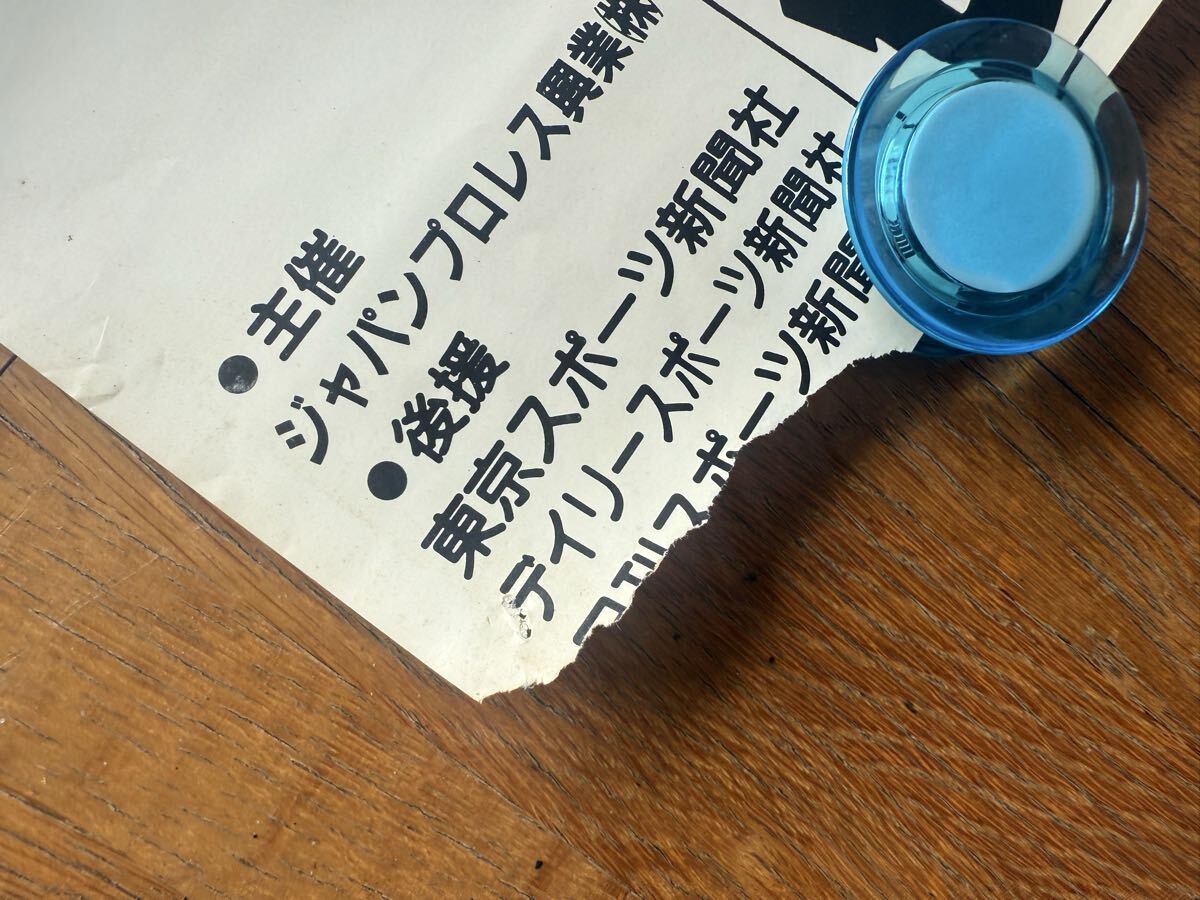 ●主催
ジャパンプロレス興業(株)
●後援
東京スポーツ新聞社
デイリースポーツ新聞社
スポーツ新聞